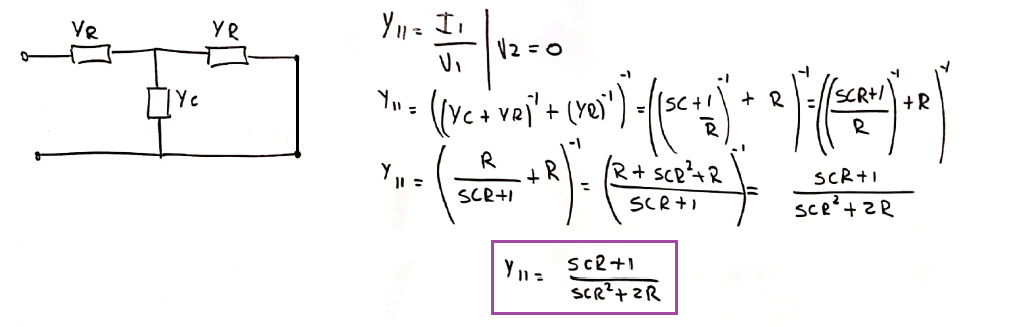 YR YR
Yc
Y11 = I1 / V1 | V2 = 0
Y11 = ((Yc + YR)^-1 + (YR)^-1)^-1 = ((SC + 1/R)^-1 + R)^-1 = ((SCR+1 / R)^-1 + R)^-1
Y11 = (R / SCR+1 + R)^-1 = (R + SCR² + R / SCR+1)^-1 = SCR+1 / SCR² + 2R
Y11 = SCR+1 / SCR² + 2R